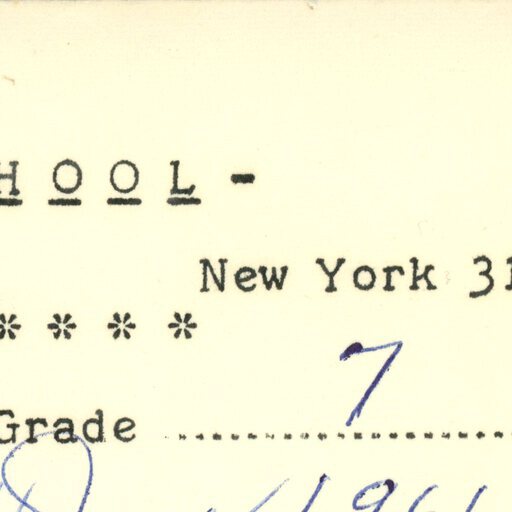 HOOL -
New York 31
* * * *
Grade 7